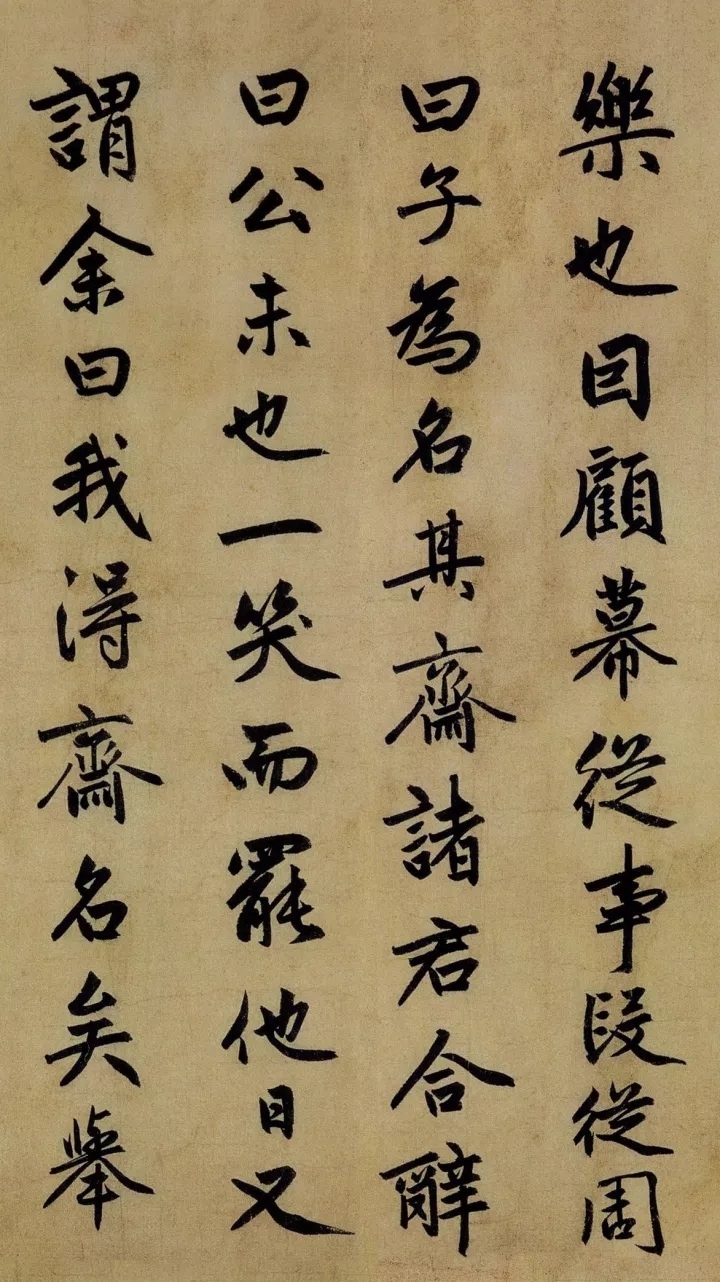 樂也因顧幕從事段從周
曰子為名其齋諸君合辭
曰公未也一笑而罷他日又
謂余曰我得齋名矣舉